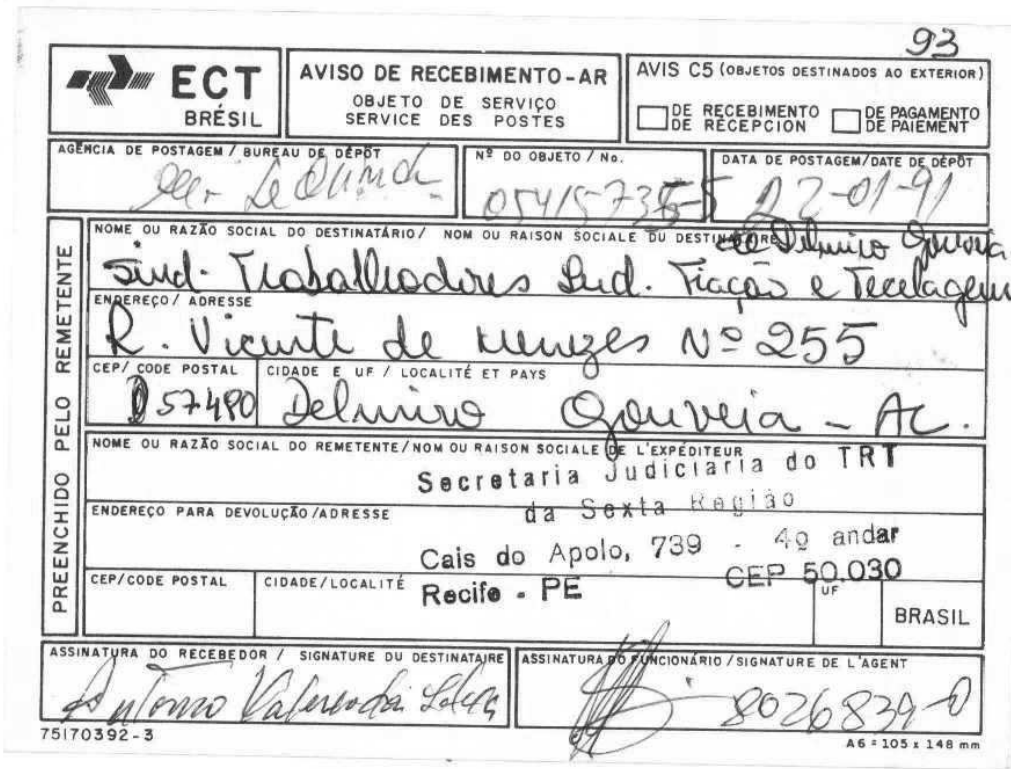 93
ECT
BRÉSIL
AVISO DE RECEBIMENTO-AR
OBJETO DE SERVIÇO
SERVICE DES POSTES
AVIS C5 (OBJETOS DESTINADOS AO EXTERIOR)
DE RECEBIMENTO DE PAGAMENTO
DE RÉCEPCION DE PAIEMENT
AGÊNCIA DE POSTAGEM / BUREAU DE DÉPÔT
Nº DO OBJETO / No.
DATA DE POSTAGEM/DATE DE DÉPÔT
22-01-91
PREENCHIDO PELO REMETENTE
NOME OU RAZÃO SOCIAL DO DESTINATÁRIO / NOM OU RAISON SOCIALE DU DESTINATAIRE
de Delmiro Gouveia
Sind. Trabalhadores Ind. Fiação e Tecelagem
ENDEREÇO / ADRESSE
R. Vicente de Menezes Nº 255
CEP/ CODE POSTAL
CIDADE E UF / LOCALITÉ ET PAYS
57480 Delmiro Gouveia - AL.
NOME OU RAZÃO SOCIAL DO REMETENTE/NOM OU RAISON SOCIALE DE L'EXPÉDITEUR
Secretaria Judiciaria do TRT
da Sexta Região
ENDEREÇO PARA DEVOLUÇÃO/ADRESSE
Cais do Apolo, 739 - 4º andar
CEP 50.030
CEP/CODE POSTAL
CIDADE/LOCALITÉ
Recife - PE
UF
BRASIL
ASSINATURA DO RECEBEDOR / SIGNATURE DU DESTINATAIRE
ASSINATURA DO FUNCIONÁRIO / SIGNATURE DE L'AGENT
Antonio
8026839-0
75170392-3
A6 = 105 x 148 mm